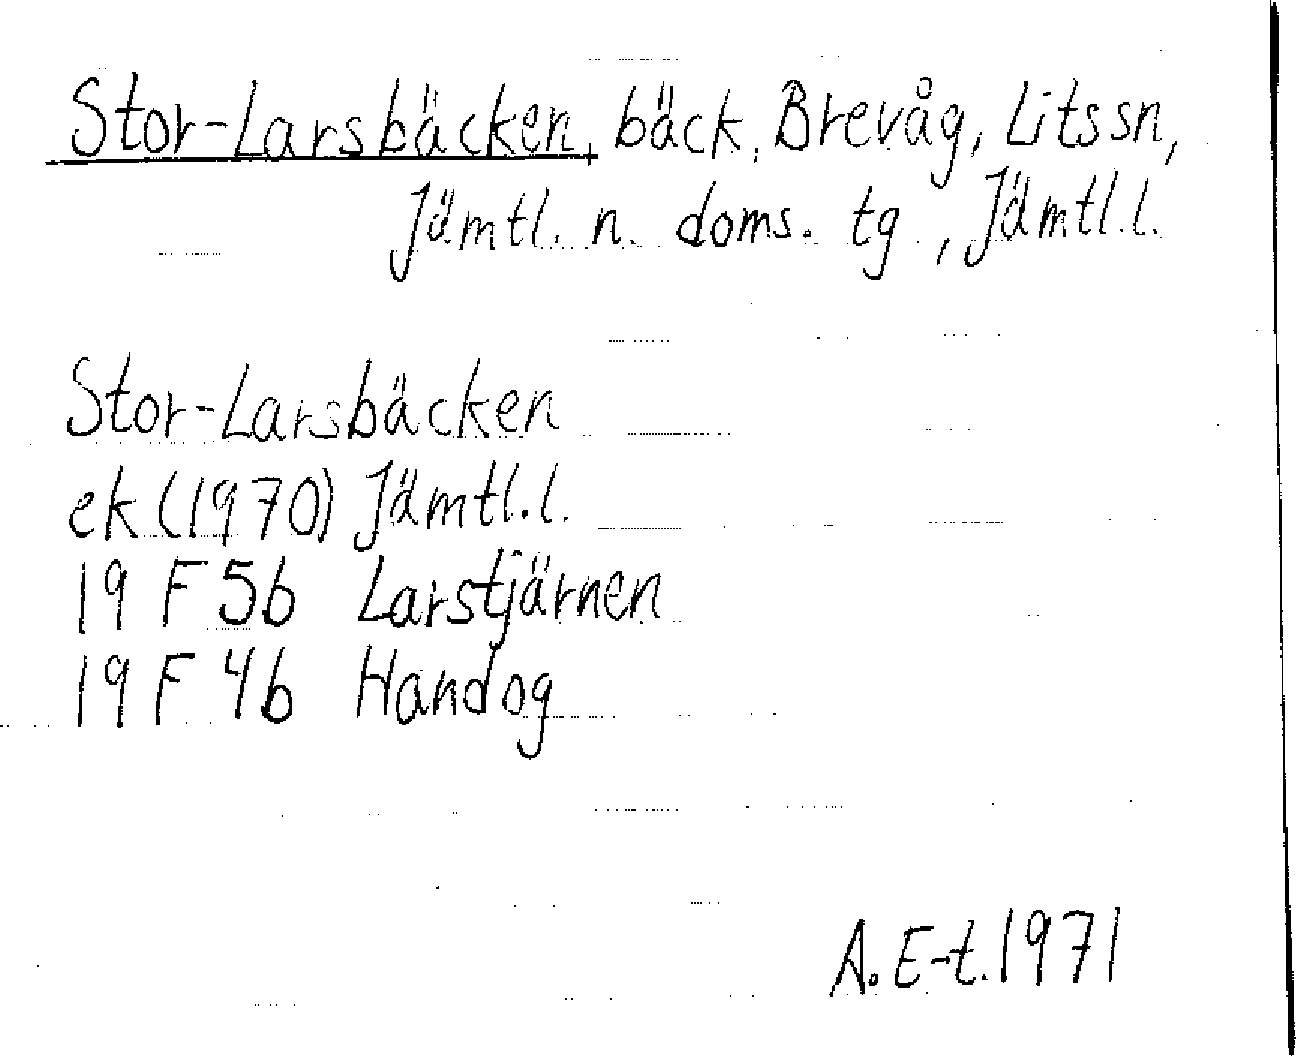 Stor-Larsbäcken, bäck, Brevåg, Litssn,
Jämtl. n. doms. tg, Jämtl.l.
Stor-Larsbäcken
ek (1970) Jämtl.l.
19 F 5b Larstjärnen
19 F 4b Handog
A. E-t. 1971